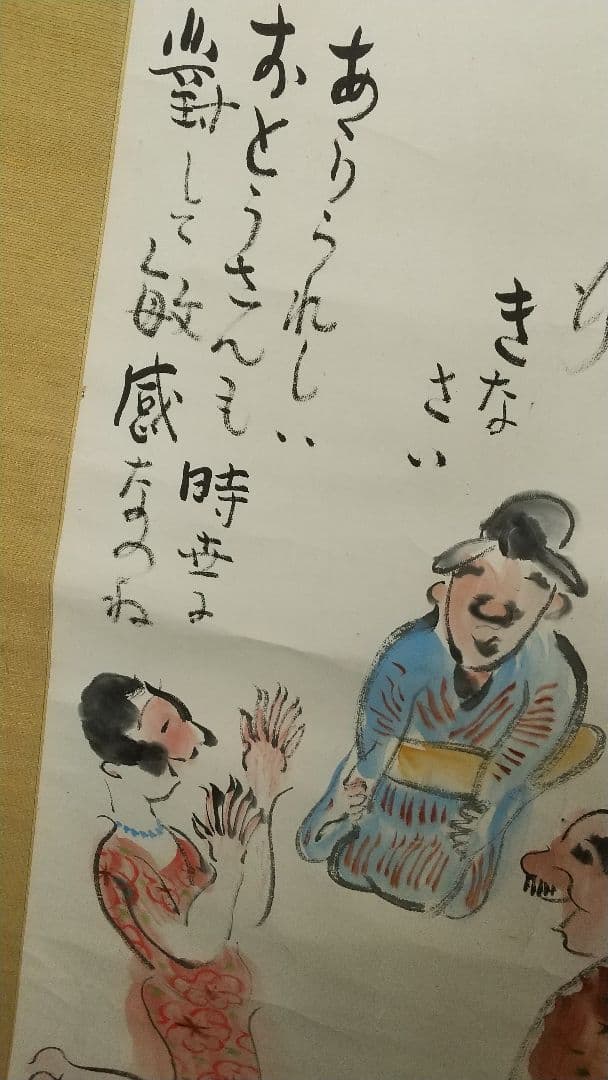 きな
さい
あゝうれしい
おとうさんも時世に
對して敏感なのね